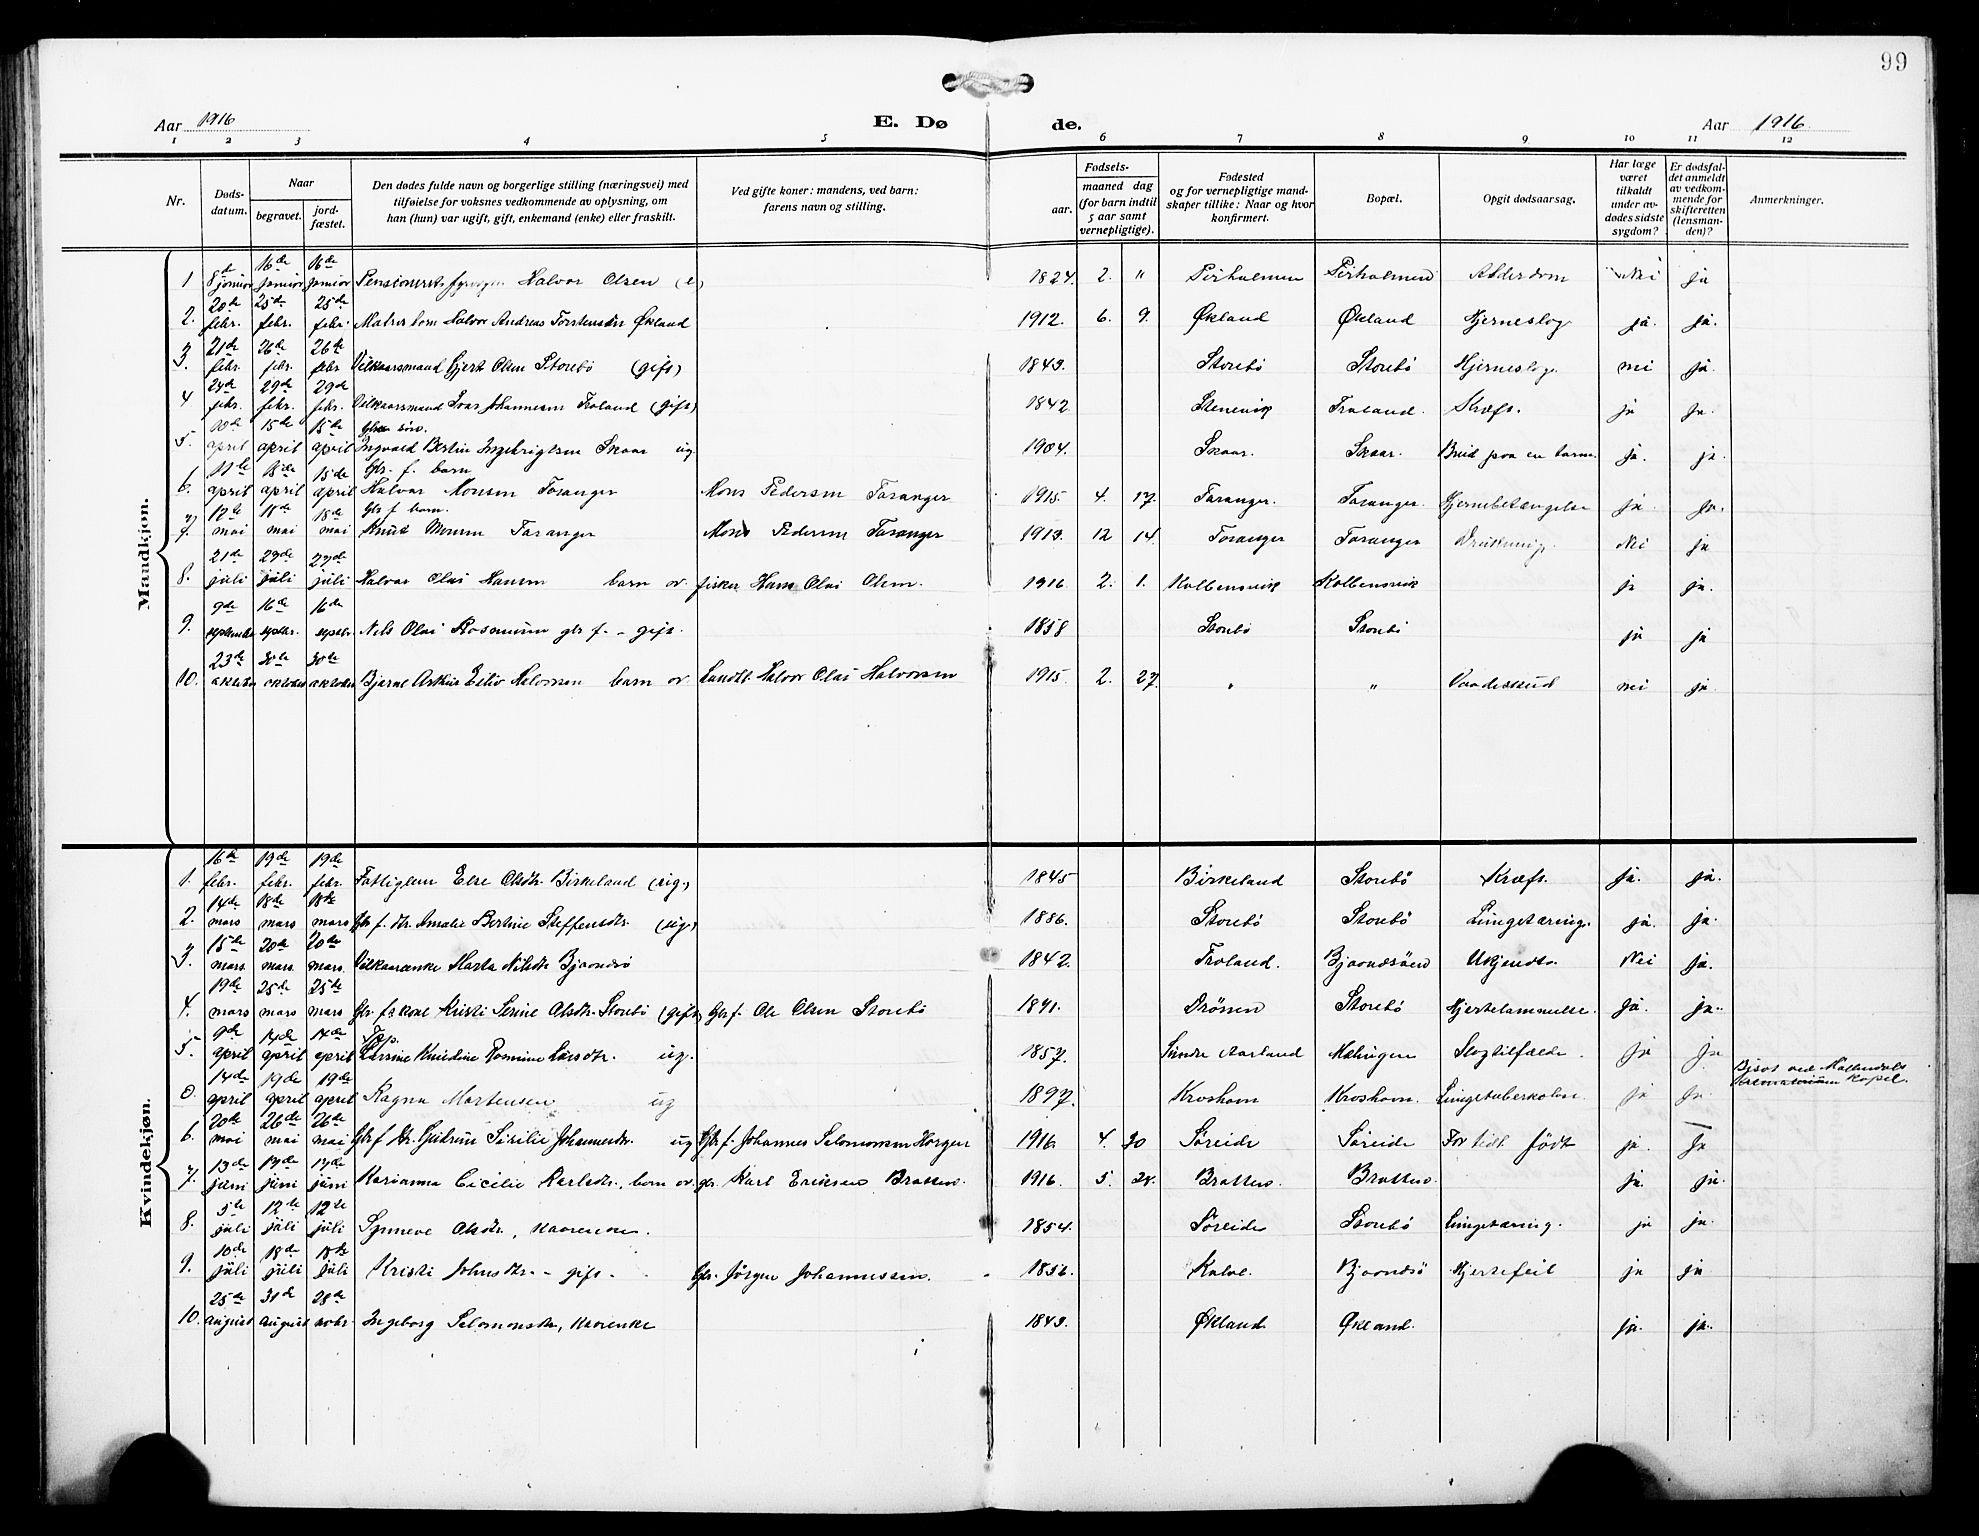 99
Aar 1916
E. Dø de.
Aar 1916
1 2 3 4 5 6 7 8 9 10 11 12
Nr.
Døds-datum.
Naar
begravet.
jord-fæstet.
Den dødes fulde navn og borgerlige stilling (næringsvei) med
tilføielse for voksnes vedkommende av oplysning, om
han (hun) var ugift, gift, enkemand (enke) eller fraskilt.
Ved gifte koner: mandens, ved barn:
farens navn og stilling.
Fødsels-
aar.
maaned dag
(for barn indtil
5 aar samt
vernepligtige).
Fødested
og for vernepligtige mand-
skaper tillike: Naar og hvor
konfirmert.
Bopæl.
Opgit dødsaarsag.
Har læge
været
tilkaldt
under av-
dødes sidste
sygdom?
Er dødsfal-
det anmeldt
av vedkom-
mende for
skifteretten
(lensman-
den)?
Anmerkninger.
Mandkjøn.
1 8de januar 16de januar 16de januar Halvor Olsen (e) 1824. 2. " Alderdom Nei ja
2. 20de febr. 25de febr. 25de febr. Halvor Andreas Økland 1912. 6. 9. Økland Økland Hjerneslag ja. ja.
3. 21de febr. 26de febr. 26de febr Vilkaarsmand Gjert Olsen Storebø (gift) 1843. Storebø Storebø Hjerneslag. nei ja.
4 24de febr. 29de febr. 29de febr. Vilkaarsmand Ivar Johannesen Troland (gift) 1842 Stenevik Troland. Kræft. ja ja.
5. 10de april 15de april 15de april Ingvald Bertin Ingebrigtsen Skaar ug. 1904. Skaar. Skaar. Brud paa en tarm. ja. ja.
6. 11te april 15de april 15de april Gbr. f. barn Halvor Monsen Toranger Mons Pedersen Toranger 1915. 4. 17. Toranger. Toranger. Hjernebetændelse ja. ja.
7. 12te mai 18de mai 18de mai Gbr f barn. Knut Monsen Toranger Mons Pedersen Toranger 1913. 12 14. Toranger Toranger Drukning. Nei ja
8. 21de juli 29de juli 29de juli Halvor Olai Hansen barn av fisker Hans Olai Olsen. 1916. 2. 1. Kolbensvik Kolbensvik ja ja.
9. 9de september 16de septbr. 16de septbr. Nils Olai Rasmussen gbr f. - gift. 1858 Storebø Storebø ja ja
10. 23de oktober 30te oktober 30te oktober Bjarne Arthur Eiliv Halvorsen barn av Landh. Halvor Olai Halvorsen 1915. 2. 27. " " Vaadeskud nei ja.
Kvindekjøn.
1. 16de febr. 19de febr. 19de febr Fattiglem Else Olsdtr. Birkeland (ug.) 1845 Birkeland Storebø Kræft. ja. ja.
2. 14de mars 18de mars 18de mars Gbr f. dtr. Amalie Bertine Steffensdtr. (ug.) 1886. Storebø Storebø Lungetæring. ja. ja.
3. 15de mars. 20de mars. 20de mars. Vilkaarsenke Marta Nilsdtr Bjaandsø 1842. Troland. Bjaandsøen Ukjendt. Nei ja.
4. 19de mars 25de mars 25de mars Gbr f.s kone Kristi Serine Olsdtr. Storebø (gift) Gbr f. Ole Olsen Storebø 1841. Drönen Storebø Hjertelammelse. ja. ja.
5. 9de april 14de april 14de april Larsine Knudine Romine Larsdtr. ug. 1857. Sundre Aarland Møkingen Slagtilfælde. ja ja
0. 14de april 19de april 19de april Ragna Mortensen ug 1897. Kroshavn Kroshavn. Lungetuberkulose. ja ja. Bisat ved Møllendals Krematorium Kapel.
6. 20de mai 26de mai 26de mai Gbr f dtr. Gudrun Sisilie Johannesdtr. ug Gbr f. Johannes Salomonsen Horgen 1916. 4. 30 Søreide Søreide For tidl. født ja. ja
7. 13de juni 17de juni 17de juni Karianna Cicilie Karlsdtr., barn av gbr. Karl Eriksen 1916. 5. 28. ja. ja.
8. 5te juli 12te juli 12te juli Synneve Olsdtr., kaarenke. 1854. Søreide Storebø Lungetæring. ja ja.
9. 10de juli 18de juli 18de juli Kristi Johnsdtr. - gift. Gbr. Jørgen Johannessen. 1856. Kalve. Bjaandsø Hjertefeil ja ja
10. 25de august 31de august 28de Ingeborg Salomonsdtr, kaarenke 1843. Økland Økland. ja. ja.